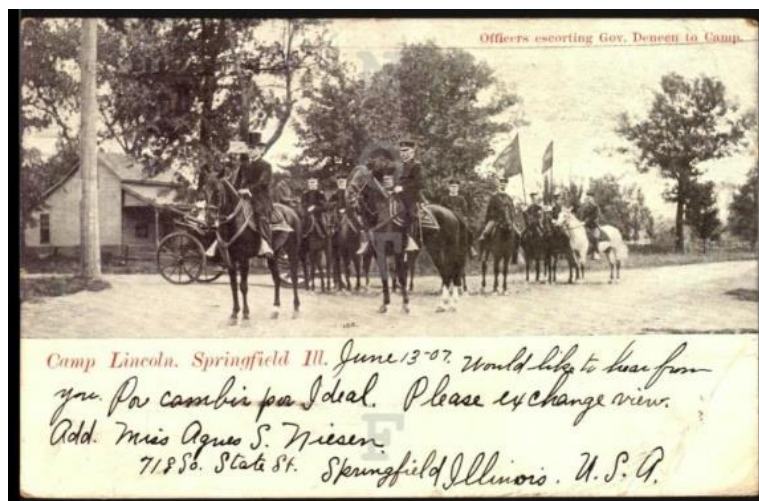 Officers escorting Gov. Deneen to Camp.
Camp Lincoln. Springfield Ill. June 13-07. Would like to hear from
you. Por cambir por Ideal. Please exchange view.
Add. Miss Agnes S. Niesen.
718 So. State St. Springfield Illinois. U.S.A.